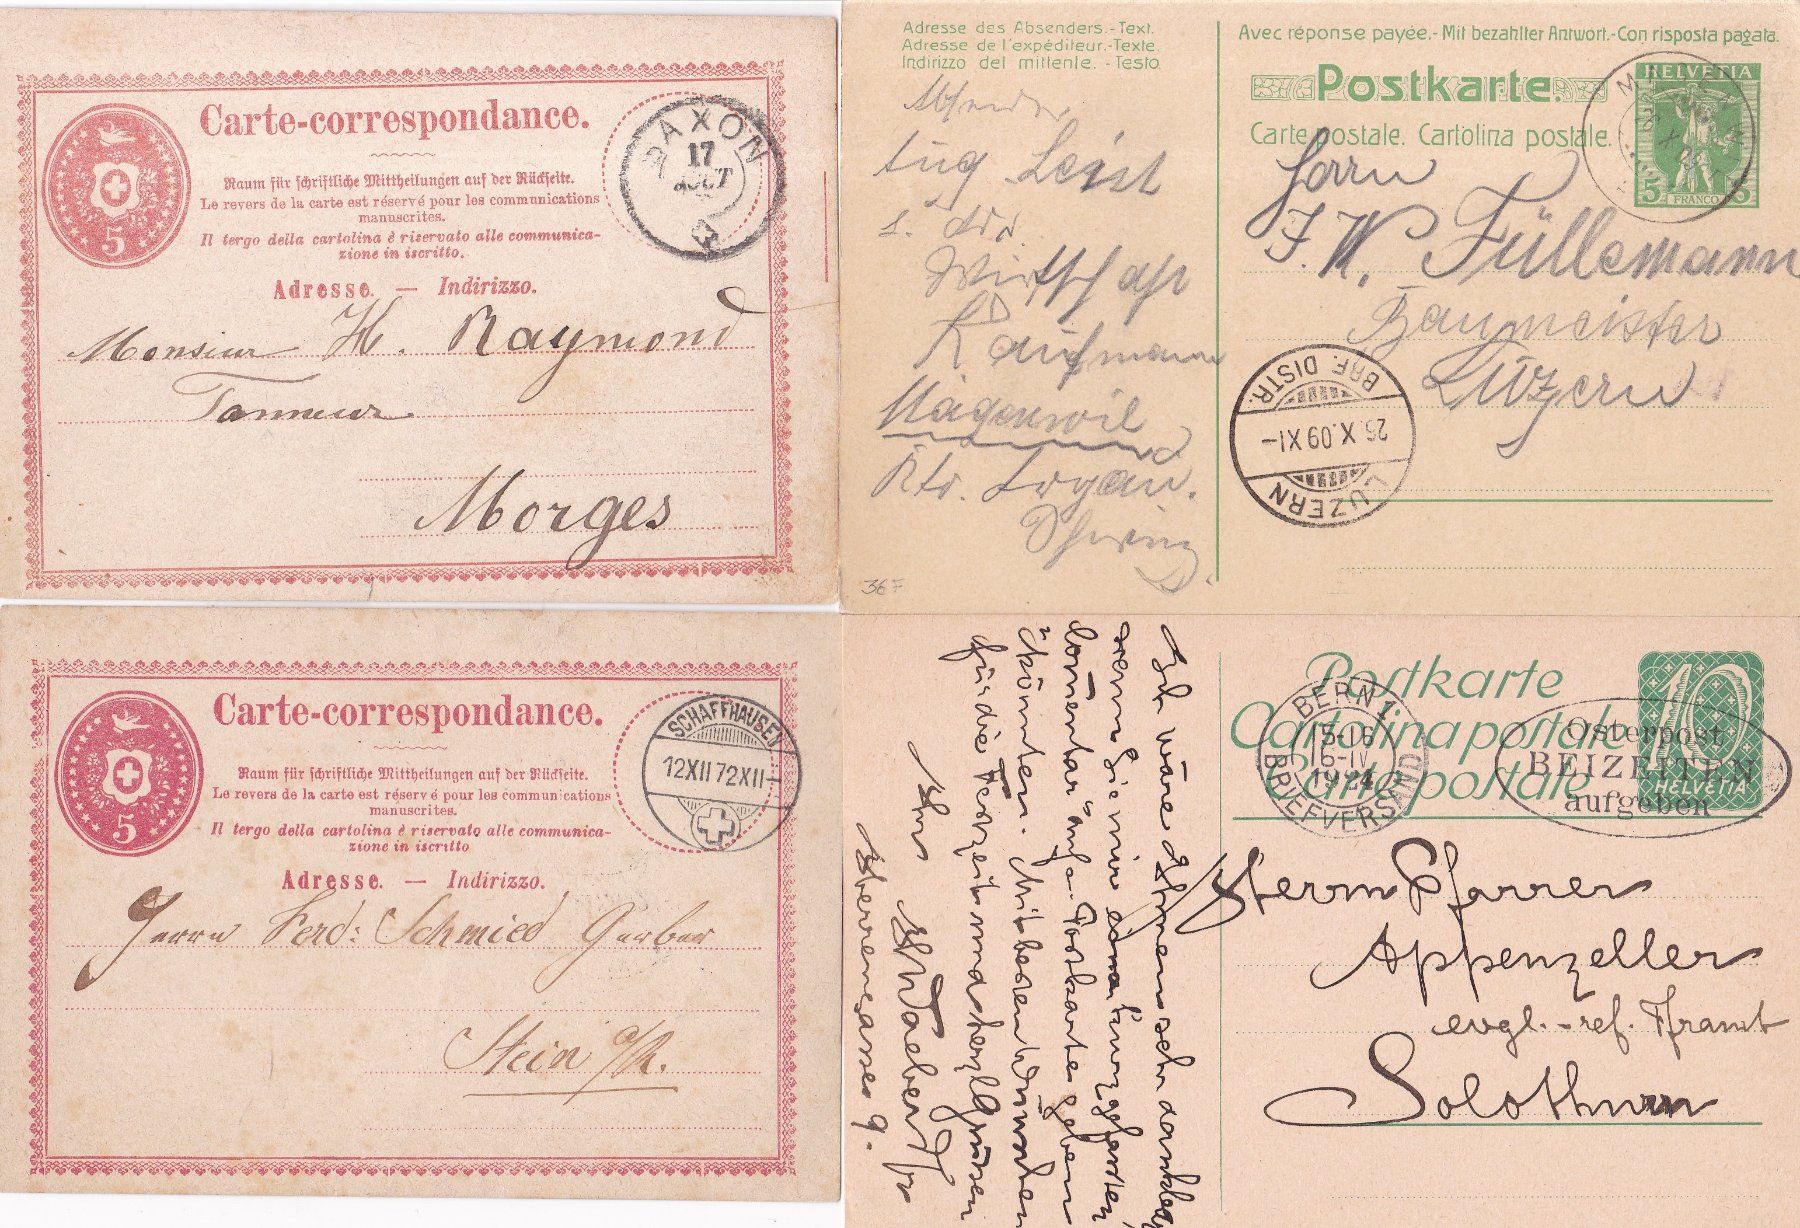 Carte-correspondance.
Raum für schriftliche Mittheilungen auf der Rückseite.
Le revers de la carte est réservé pour les communications
manuscrites.
Il tergo della cartolina è riservato alle communica-
zione in iscritto.
Adresse. — Indirizzo.
5
SAXON
17
AOUT
Monsieur H. Raymond
Tanneur
Morges
Adresse des Absenders.-Text.
Adresse de l'expéditeur.-Texte.
Indirizzo del mittente. - Testo.
Aug Leist
Wirtschaft
Kaufmann
Mägenwil
Kto. Argau.
36 F
Avec réponse payée.- Mit bezahlter Antwort.-Con risposta pagata.
Postkarte.
Carte postale. Cartolina postale.
HELVETIA
5 FRANCO 5
Herrn
J. K. Füllemann
Baumeister
Luzern
BRF. DISTR.
25. X. 09 XI-
LUZERN
Carte-correspondance.
Raum für schriftliche Mittheilungen auf der Rückseite.
Le revers de la carte est réservé pour les communications
manuscrites.
Il tergo della cartolina è riservato alle communica-
zione in iscritto
Adresse. — Indirizzo.
5
SCHAFFHAUSEN
12XII72XII-
Herrn Ferd: Schmied Gerber
Stein a/R.
Ich wäre Ihnen sehr dankbar
wenn Sie mir einen kurzgefassten
"Kommentar" auf e. Postkarte geben
könnten. Mit besten Wünschen
für die Festzeit und herzl. Grüssen
Ihr
Herrengasse 9.
Postkarte
Cartolina postale
Carte postale
10
HELVETIA
BERN 1
15-16
16-IV
1924
BRIEFVERSAND
Osterpost
BEIZEITEN
aufgeben
Herrn Pfarrer
Appenzeller
evgl.-ref. Pframt
Solothurn